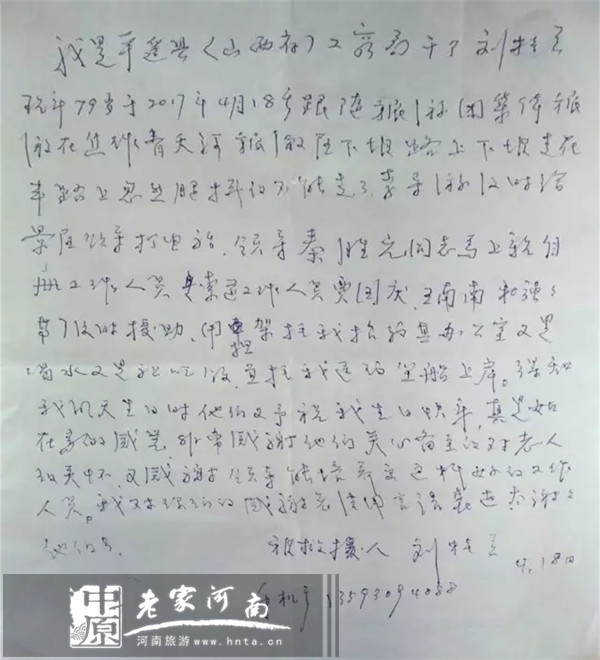 我是平遥县（山西省）工商局干部刘桂
现年79岁于2017年4月18号跟随旅行团集体旅
行在焦作青天河旅行在下坡路上下坡走在
半路上忽然腿抖的不能走了，导游及时给
景区领导打电话，领导秦胜元同志马上派
工作人员 索道工作人员贾国庆、王南南和
等及时援助，用担架担我抬的其办公室又是
喝水又是 吃饭，并担我送的坐船上岸。得知
我明天生日时他们又予祝我生日快乐，真是如
在家的感觉，非常感谢他们关心备至的对老人
的关怀，又感谢领导能培养出这样好的工作
人员。我对你们的感谢无法用言语表达太谢谢
他们了。
被救援人 刘桂
4.18日
手机号 13593094088
中原
老家河南
河南旅游 www.hnta.cn